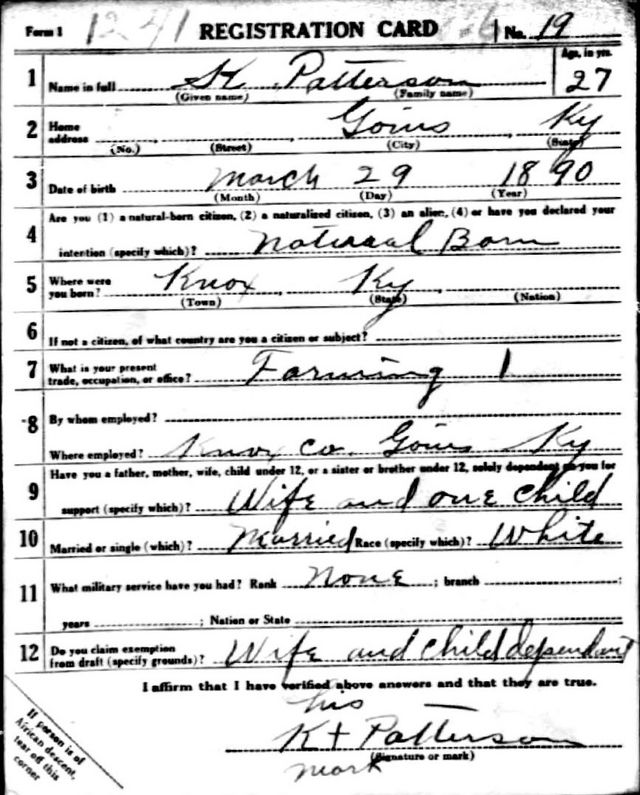 Form 1 1241 REGISTRATION CARD No. 19
1 Name in full St Patterson Age, in yrs. 27
(Given name) (Family name)
2 Home address Goins, Ky
(No.) (Street) (City) (State)
3 Date of birth March 29 1890
(Month) (Day) (Year)
4 Are you (1) a natural-born citizen, (2) a naturalized citizen, (3) an alien, (4) or have you declared your
intention (specify which)? Natural Born
5 Where were you born? Knox, Ky,
(Town) (State) (Nation)
6 If not a citizen, of what country are you a citizen or subject?
7 What is your present trade, occupation, or office? Farming 1
8 By whom employed?
Where employed? Knox Co. Goins Ky
9 Have you a father, mother, wife, child under 12, or a sister or brother under 12, solely dependent on you for
support (specify which)? Wife and one child
10 Married or single (which)? Married Race (specify which)? White
11 What military service have you had? Rank None ; branch ;
years ; Nation or State
12 Do you claim exemption from draft (specify grounds)? Wife and child dependant
I affirm that I have verified above answers and that they are true.
his
K + Patterson
(Signature or mark)
mark
If person is of
African descent,
tear off this
corner